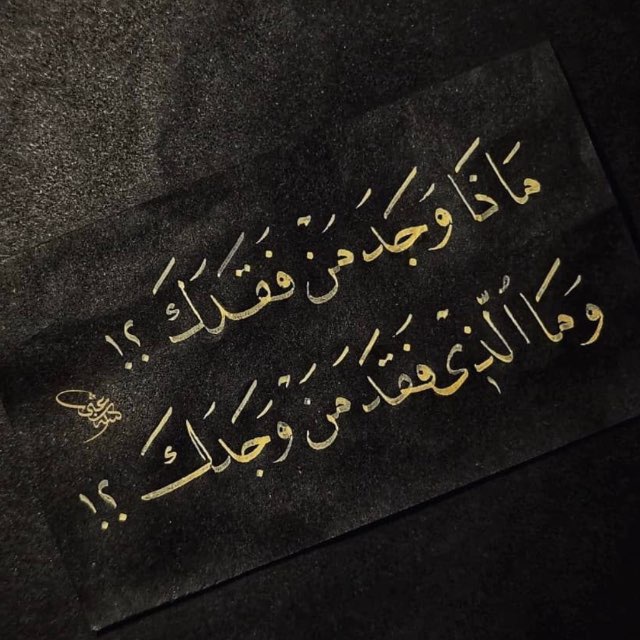 مَاذَا وَجَدَ مَنْ فَقَدَكَ ؟!
وَمَا الَّذِىْ فَقَدَ مَنْ وَجَدَكَ ؟!